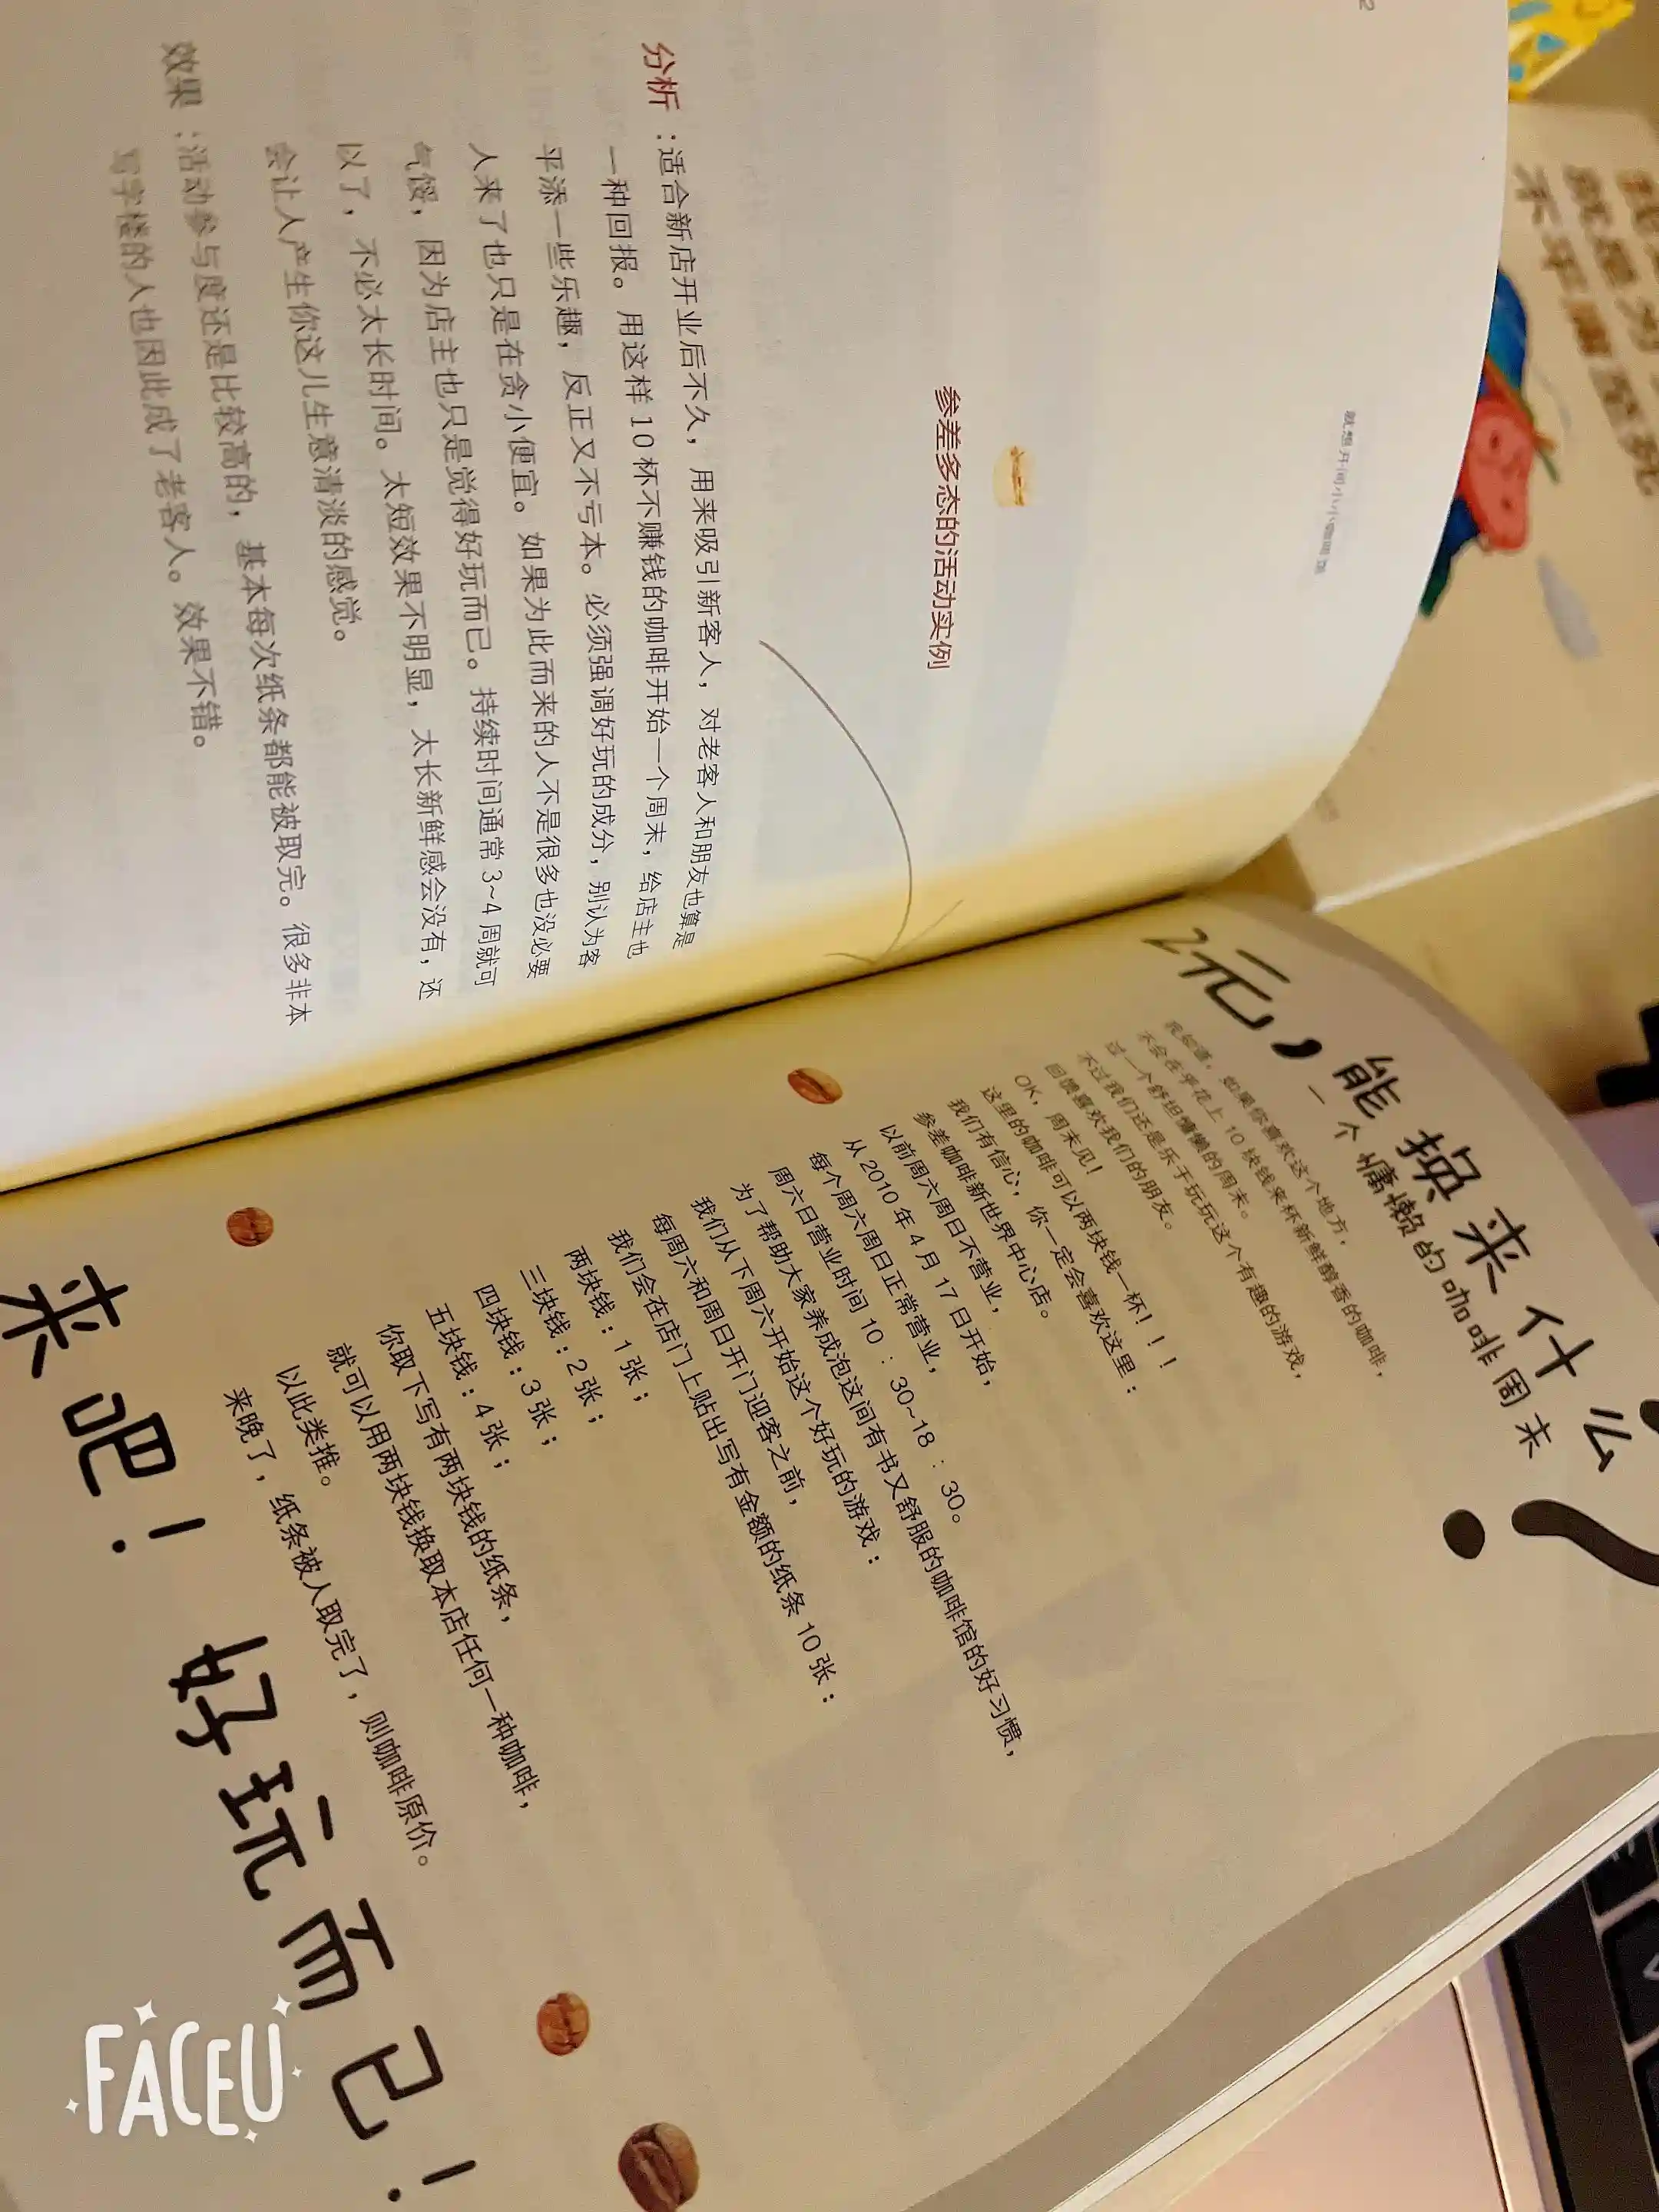 就想开间小小咖啡馆
参差多态的活动实例
分析：适合新店开业后不久，用来吸引新客人，对老客人和朋友也算是
一种回报。用这样10杯不赚钱的咖啡开始一个周末，给店主也
平添一些乐趣，反正又不亏本。必须强调好玩的成分，别认为客
人来了也只是在贪小便宜。如果为此而来的人不是很多也没必要
气馁，因为店主也只是觉得好玩而已。持续时间通常3~4周就可
以了，不必太长时间。太短效果不明显，太长新鲜感会没有，还
会让人产生你这儿生意清淡的感觉。
效果：活动参与度还是比较高的，基本每次纸条都能被取完。很多非本
写字楼的人也因此成了老客人。效果不错。
2元，能换来什么？
一个慵懒的咖啡周末
我知道，如果你喜欢这个地方，
不会在乎花上10块钱来杯新鲜醇香的咖啡，
过一个舒坦慵懒的周末。
不过我们还是乐于玩玩这个有趣的游戏，
回馈喜欢我们的朋友。
OK，周末见！
这里的咖啡可以两块钱一杯！！！
我们有信心，你一定会喜欢这里：
参差咖啡新世界中心店。
以前周六周日不营业，
从2010年4月17日开始，
每个周六周日正常营业，
周六日营业时间10：30~18：30。
为了帮助大家养成泡这间有书又舒服的咖啡馆的好习惯，
我们从下周六开始这个好玩的游戏：
每周六和周日开门迎客之前，
我们会在店门上贴出写有金额的纸条10张：
两块钱：1张；
三块钱：2张；
四块钱：3张；
五块钱：4张；
你取下写有两块钱的纸条，
就可以用两块钱换取本店任何一种咖啡，
以此类推。
来晚了，纸条被人取完了，则咖啡原价。
来吧！好玩而已！
FACEU